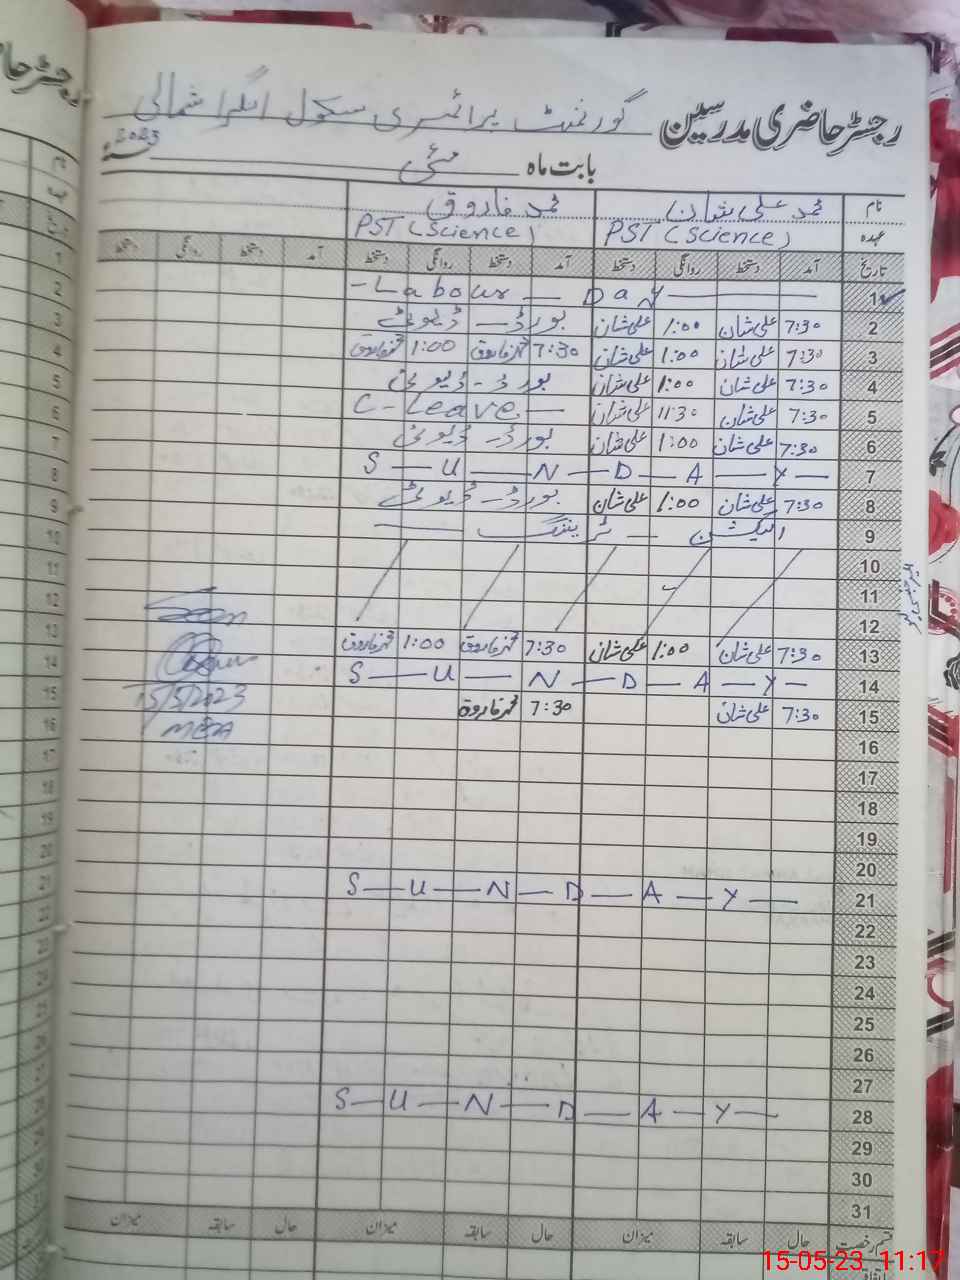 رجسٹر حاضری مدرسین گورنمنٹ پرائمری سکول انگرا شمالی
بابت ماہ مئی 2023
نام محمد علی شان محمد فاروق
عہدہ PST (Science) PST (Science)
تاریخ آمد دستخط روانگی دستخط آمد دستخط روانگی دستخط آمد دستخط روانگی دستخط
1 -Labour - Day
2 7:30 علی شان 1:00 علی شان بورڈ - ڈیوٹی
3 7:30 علی شان 1:00 علی شان 7:30 محمد فاروق 1:00 محمد فاروق
4 7:30 علی شان 1:00 علی شان بورڈ - ڈیوٹی
5 7:30 علی شان 11:30 علی شان C-Leave
6 7:30 علی شان 1:00 علی شان بورڈ - ڈیوٹی
7 S - U - N - D - A - Y -
8 7:30 علی شان 1:00 علی شان بورڈ - ڈیوٹی
9 الیکشن - ٹریننگ
10
11
12
13 7:30 علی شان 1:00 علی شان 7:30 محمد فاروق 1:00 محمد فاروق
14 S - U - N - D - A - Y -
15 7:30 علی شان 7:30 محمد فاروق
16
17
18
19
20
21 S - U - N - D - A - Y -
22
23
24
25
26
27
28 S - U - N - D - A - Y -
29
30
31
قسم رخصت حال سابقہ میزان حال سابقہ میزان حال سابقہ میزان
Seen
15/5/2023
MEA
رجسٹر حا
نام
عہدہ
تاریخ
1
2
3
4
5
6
7
8
9
10
11
12
13
14
15
16
17
18
19
20
21
22
23
15-05-23 11:17